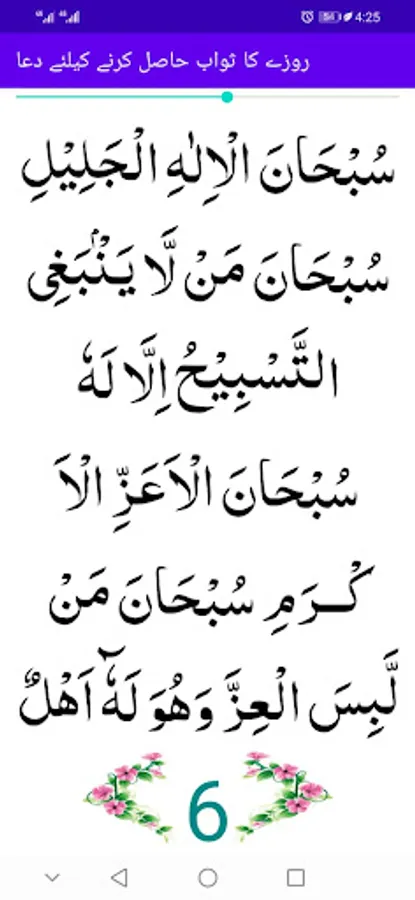 4:25
روزے کا ثواب حاصل کرنے کیلئے دعا
سُبْحَانَ الْاِلٰهِ الْجَلِيْلِ
سُبْحَانَ مَنْ لَّا يَنْۢبَغِى
التَّسْبِيْحُ اِلَّا لَهٗ
سُبْحَانَ الْاَعَزِّ الْاَ
كْـرَمِ سُبْحَانَ مَنْ
لَّبِسَ الْعِزَّ وَهُوَ لَهٗۤ اَهْلٌ
6